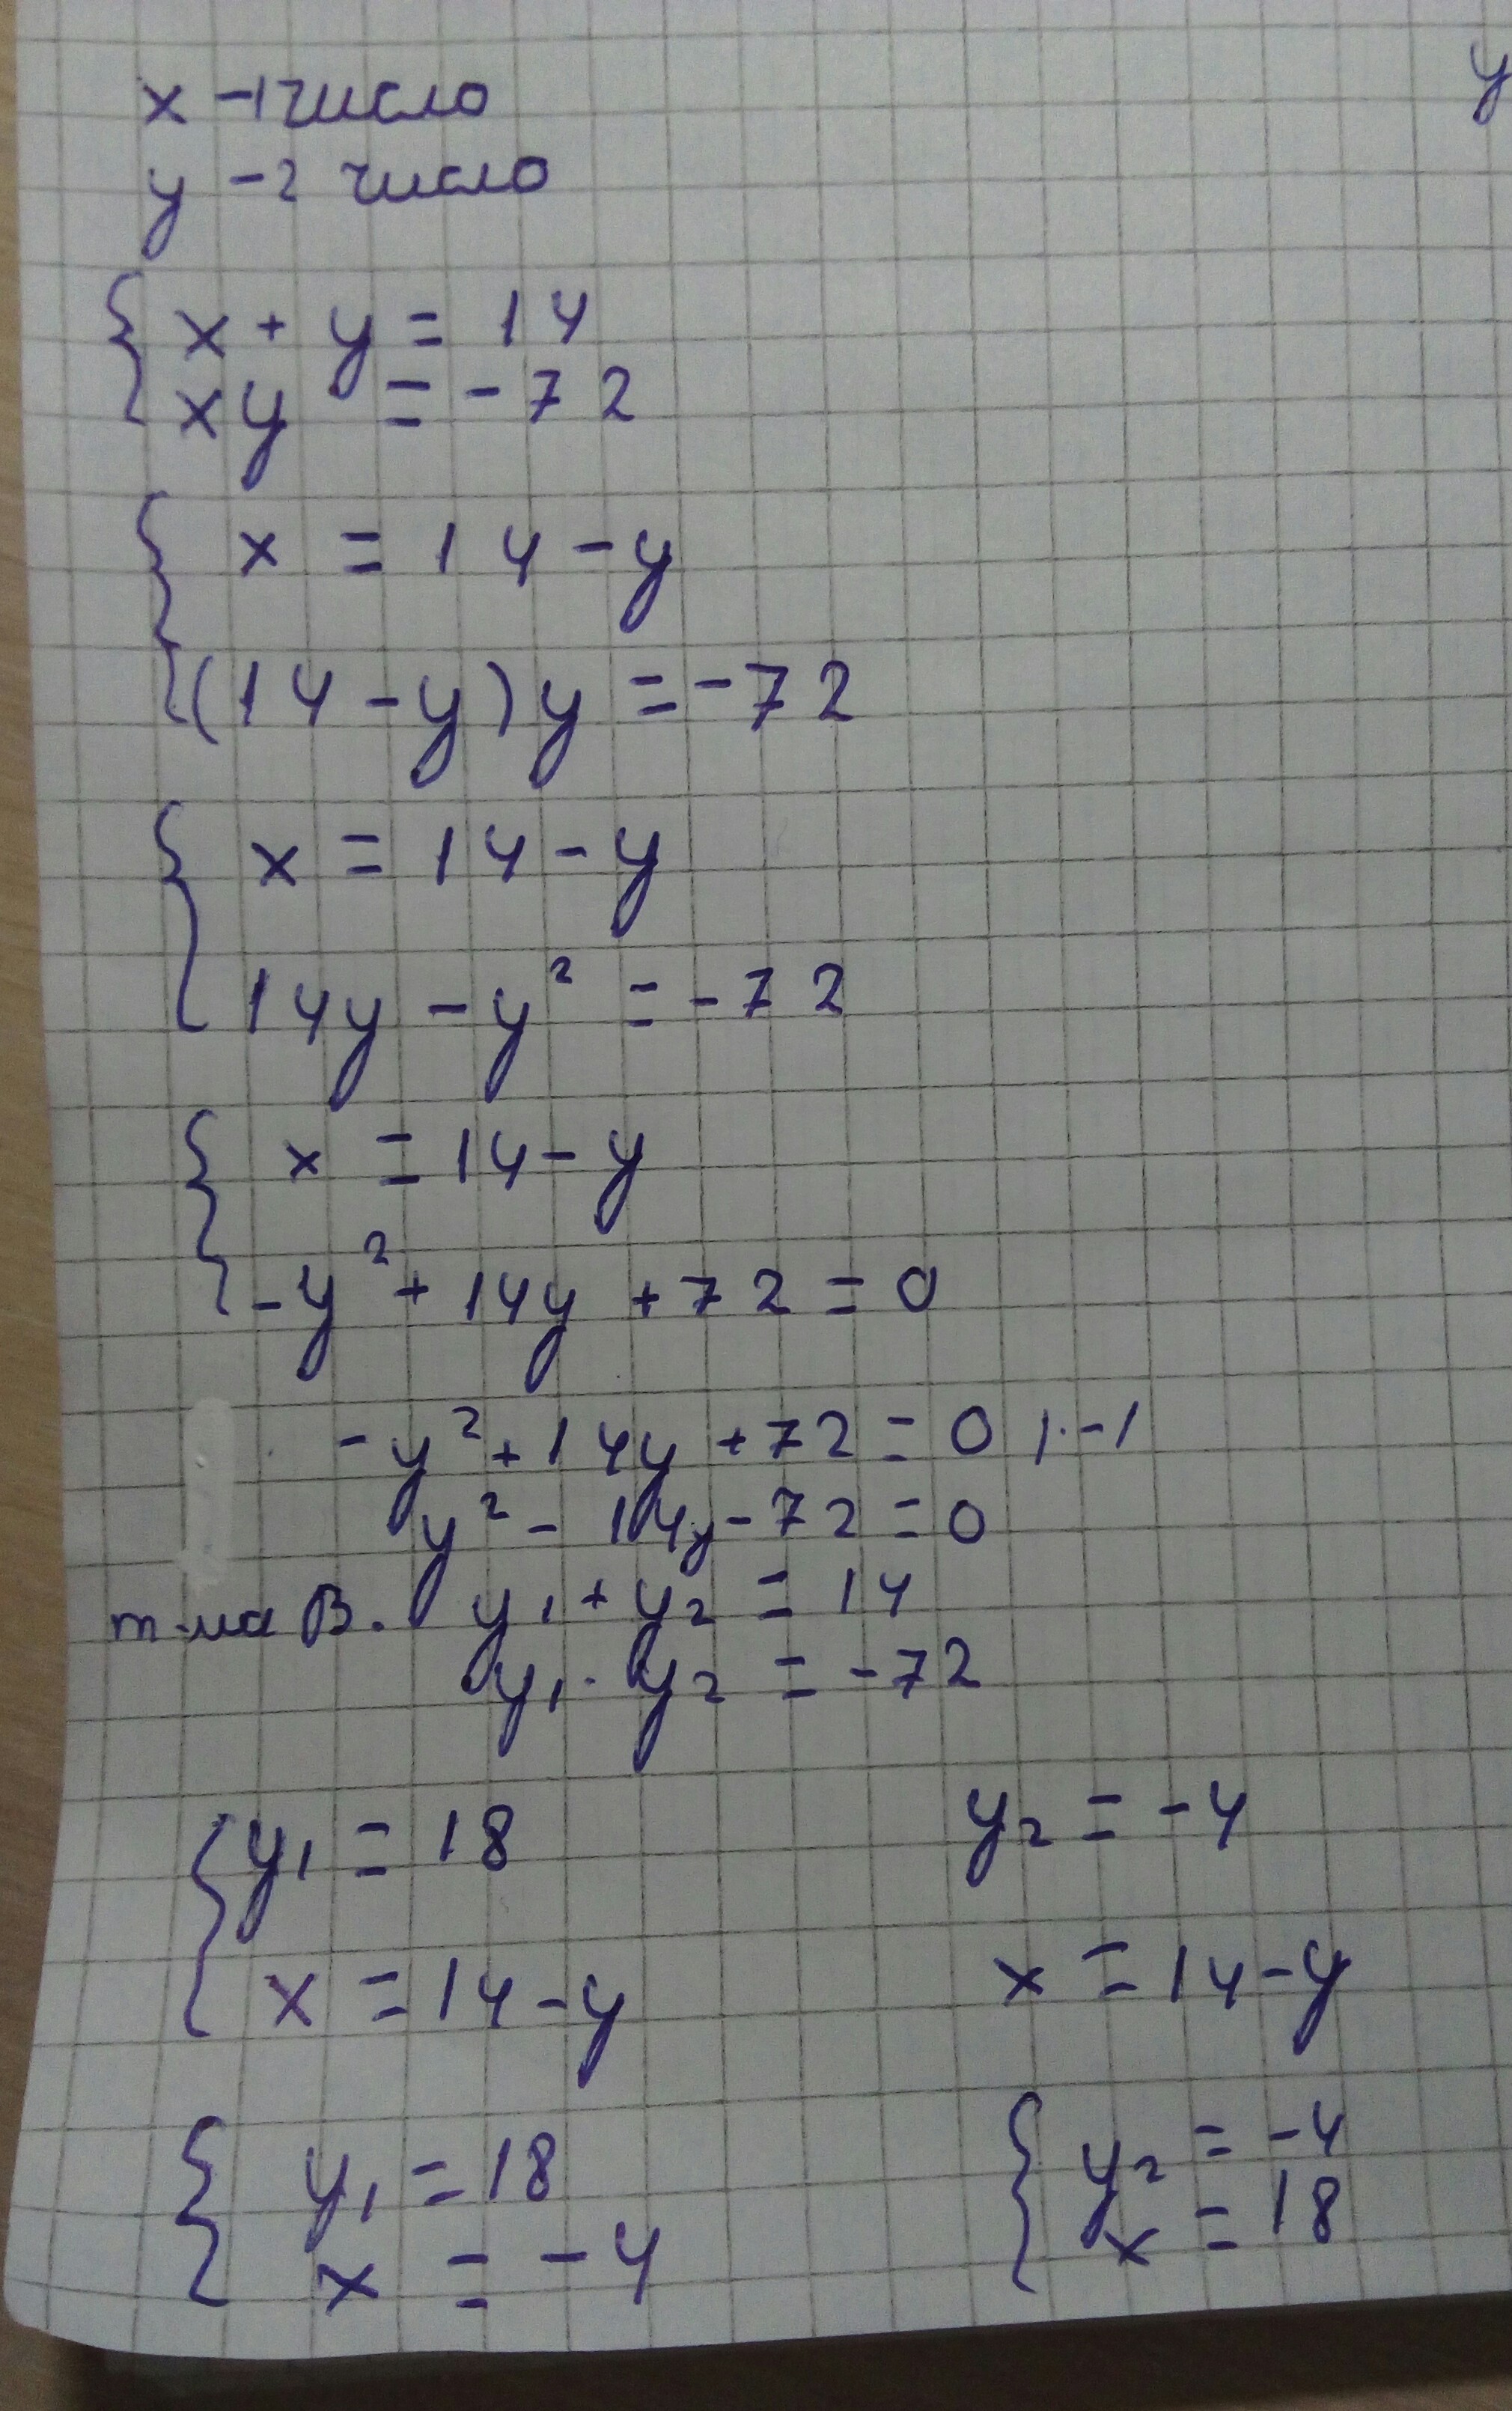 x - 1 число
y - 2 число
y
{ x + y = 14
xy = -72
{ x = 14 - y
(14 - y) y = -72
{ x = 14 - y
14y - y² = -72
{ x = 14 - y
-y² + 14y + 72 = 0
-y² + 14y + 72 = 0 | · -1
y² - 14y - 72 = 0
т-ма В. y₁ + y₂ = 14
y₁ · y₂ = -72
{ y₁ = 18 y₂ = -4
x = 14 - y x = 14 - y
{ y₁ = 18 { y₂ = -4
x = -4 x = 18